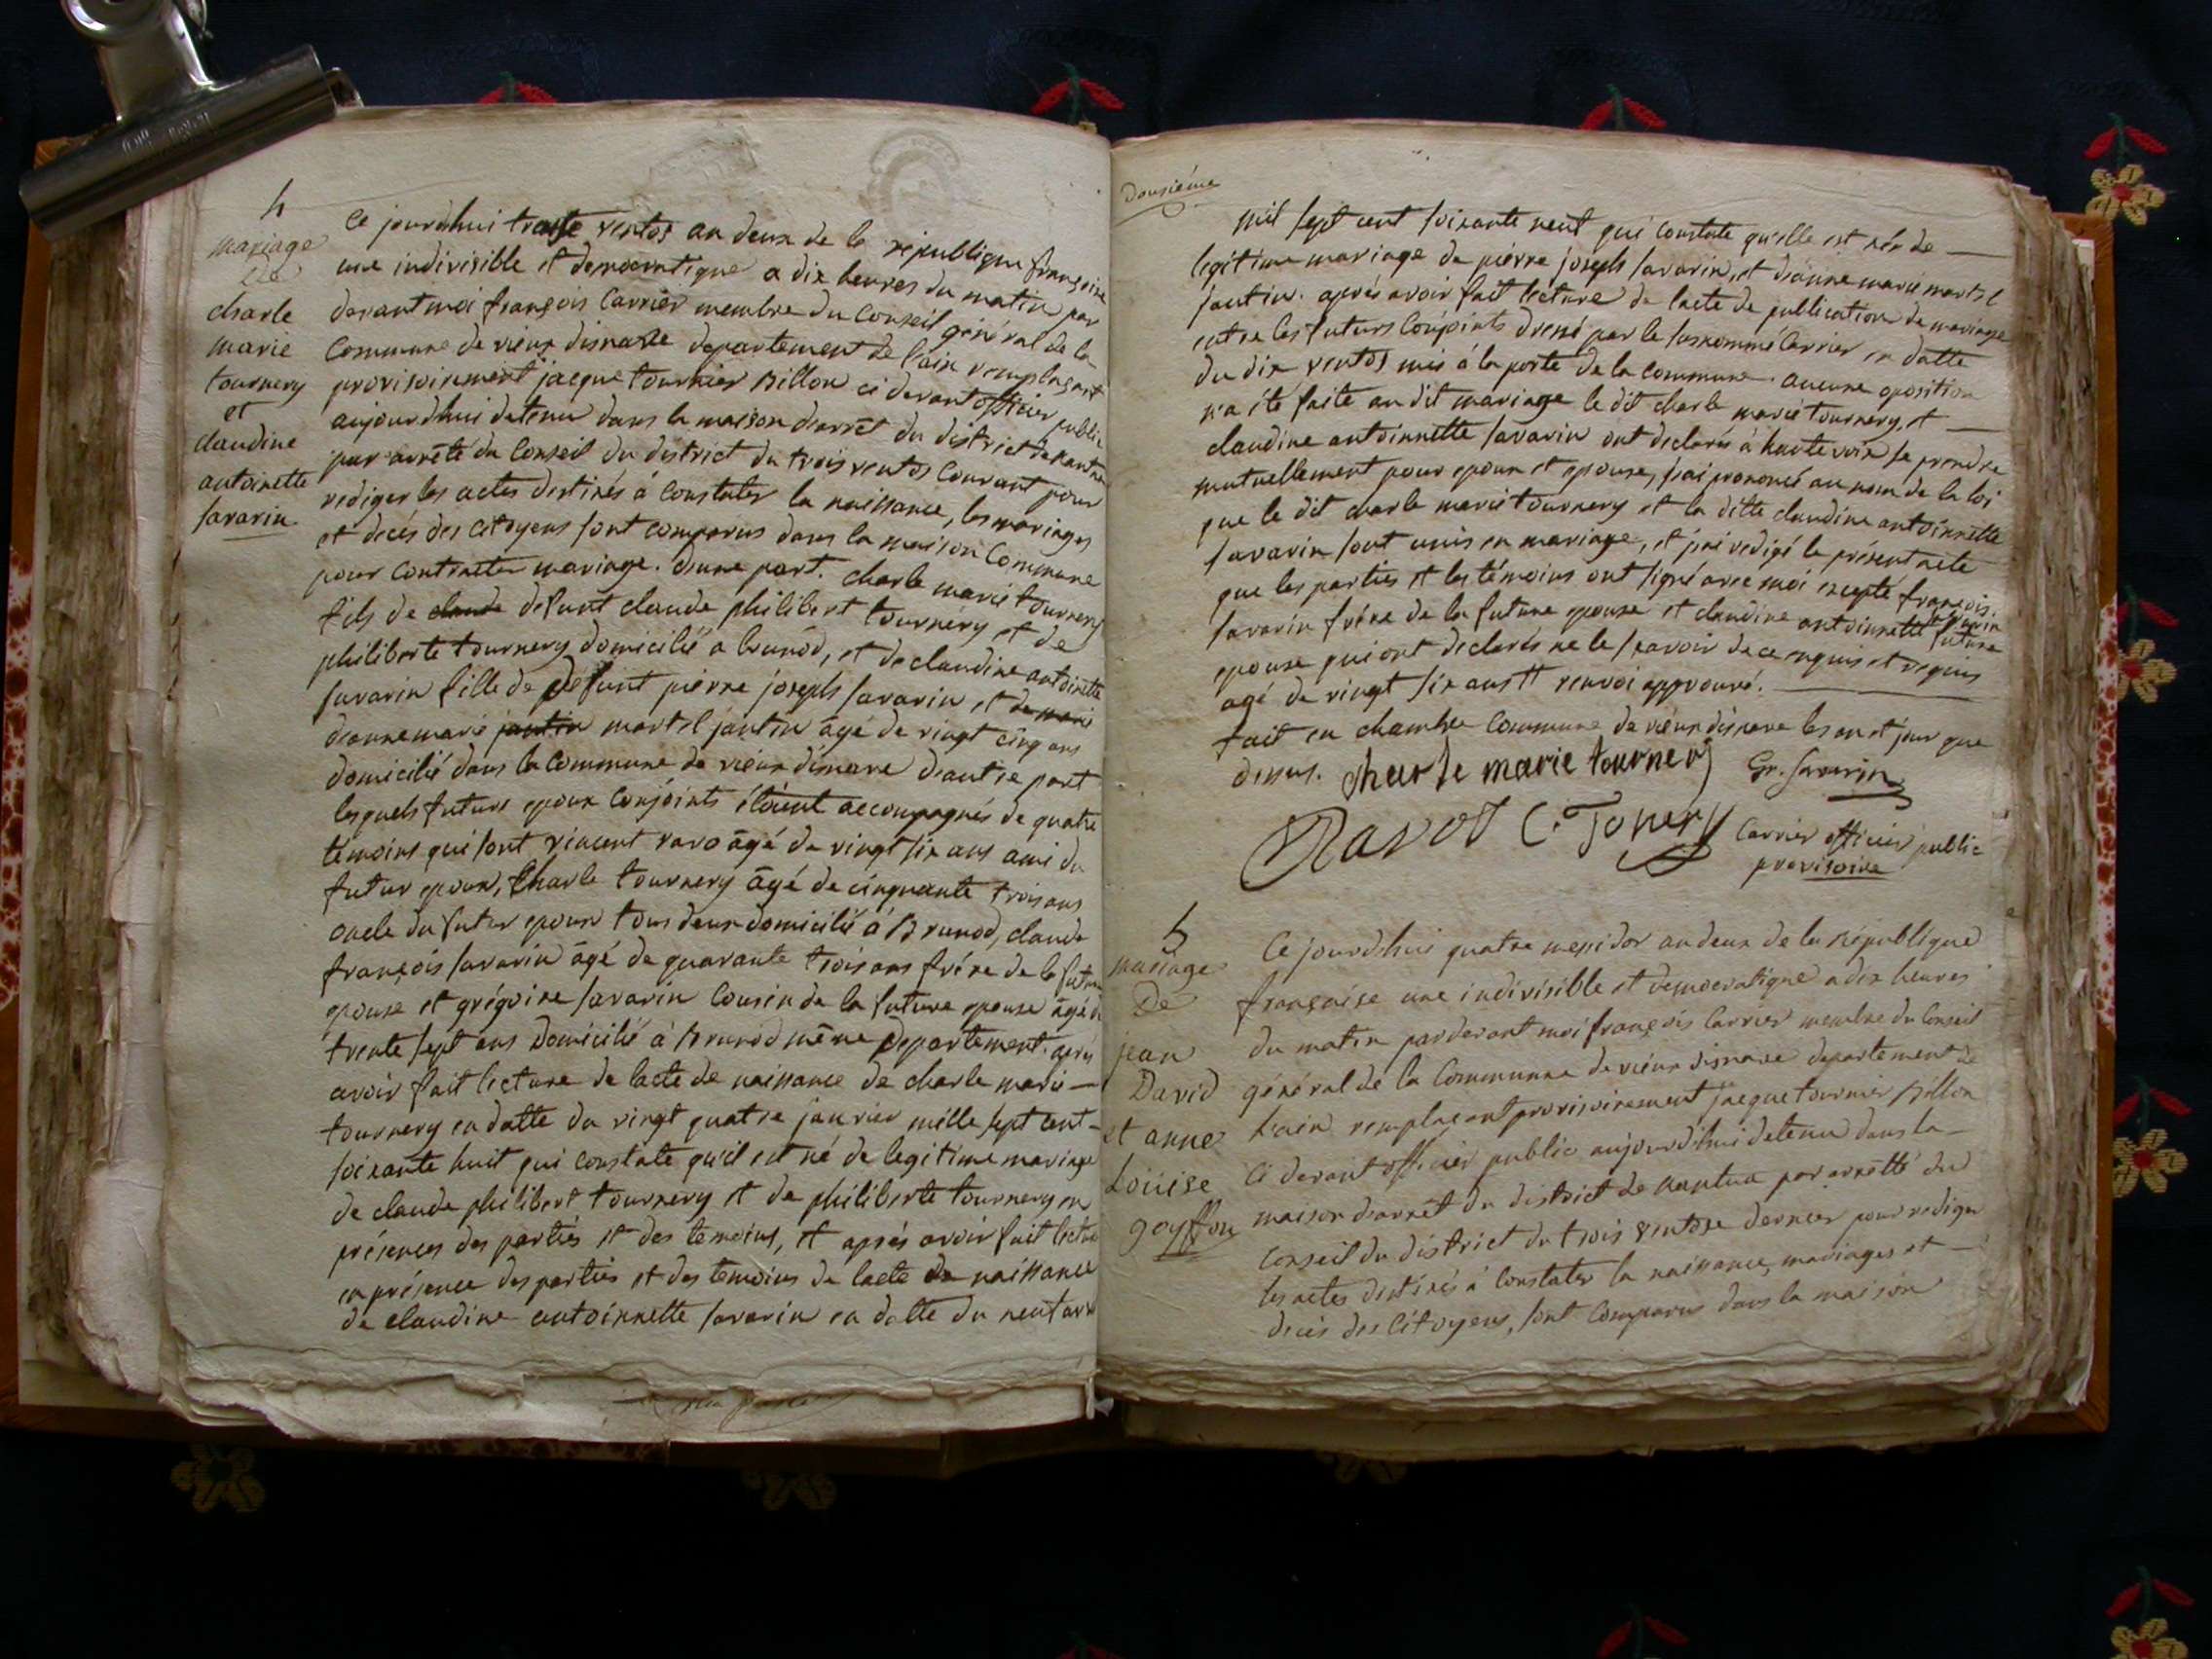 4
mariage
de
charle
marie
tournery
et
claudine
antoinette
savarin
Ce jourdhui trente ventos an deux de la république françoise
une indivisible et democratique a dix heures du matin par
devant moi françois Carrier membre du Conseil général de la
Commune de vieux disnave departement de l'ain remplaçant
provisoirement jacque tournier billon ci devant officier public
aujourdhui detenu dans la maison darrêt du district de nantua
par arrêté du Conseil du district du trois ventos courant pour
rediger les actes destinés à constater la naissance, les mariages
et decés des citoyens sont comparus dans la maison Commune
pour contracter mariage. dune part. charle marie tournery
fils de claude defunt claude philibert tournery et de
philiberte tournery domicilié a brunod, et de claudine antoinette
savarin fille de défunt pierre joseph savarin et de marie
deanne marie jantin martel jantin âgé de vingt cinq ans
domicilié dans la Commune de vieux disnave dautre part
lesquels futurs epoux conjoints étoient accompagnés de quatre
témoins qui sont vincent ravo âgé de vingt six ans ami du
futur epoux, charle tournery âgé de cinquante trois ans
oncle du futur epoux tous deux domicilié à Brunod, claude
françois savarin âgé de quarante trois ans frére de la future
epouse et grégoire savarin Cousin de la future epouse âgé de
trente sept ans Domicilié à Brunod même Departement. aprés
avoir fait lecture de lacte de naissance de charle marie —
tournery en datte du vingt quatre janvier mille sept cent —
soixante huit qui constate qu'il est né de legitime mariage
de claude philibert tournery et de philiberte tournery en
présences des parties et des temoins, et aprés avoir fait lecture
en présence des parties et des temoins de lacte de naissance
de claudine antoinnette savarin en datte du neuf avril
Dousiéme
mil sept cent soixante neuf qui constate qu'elle est née de —
legitime mariage de pierre joseph savarin, et deanne marie martel
jantin. aprés avoir fait lecture de lacte de publication de mariage
entre les futurs Conjoints dressé par le susnommé Carrier en datte
du dix ventos mis à la porte de la commune. aucune oposition
n'a été faite au dit mariage le dit charle marie tournery, et —
claudine antoinnette savarin ont declarés à haute voix se prendre
mutuellement pour epoux et epouse, j'ai prononcé au nom de la loi
que le dit charle marie tournery et la ditte claudine antoinnette
savarin sont unis en mariage, et j'ai redigé le présent acte
que les parties et les témoins ont signé avec moi excepté françois
savarin frére de la future epouse et claudine antoinnette savarin future
epouse qui ont declarés ne le sçavoir de ce enquis et requis
agé de vingt six ans renvoi approuvé.
fait en chambre commune de vieux disnave les an et jour que
dessus. Charle marie tournery Gr. savarin
Ravot C. Tonery Carrier officier public
provisoire
5
mariage
De
jean
David
et anne
Loüise
goyffon
Ce jourdhui quatre messidor an deux de la République
françoise une indivisible et democratique a dix heures
du matin pardevant moi françois Carrier membre du Conseil
général de la Commune de vieux disnave departement de
l'ain remplaçant provisoirement jacque tournier billon
Ci devant officier public aujourdhui detenu dans la —
maison darrêt du district de nantua par arretté du
Conseil du district du trois ventose dernier pour rediger
les actes destinés à constater la naissance, mariages et —
decés des Citoyens, sont comparus dans la maison